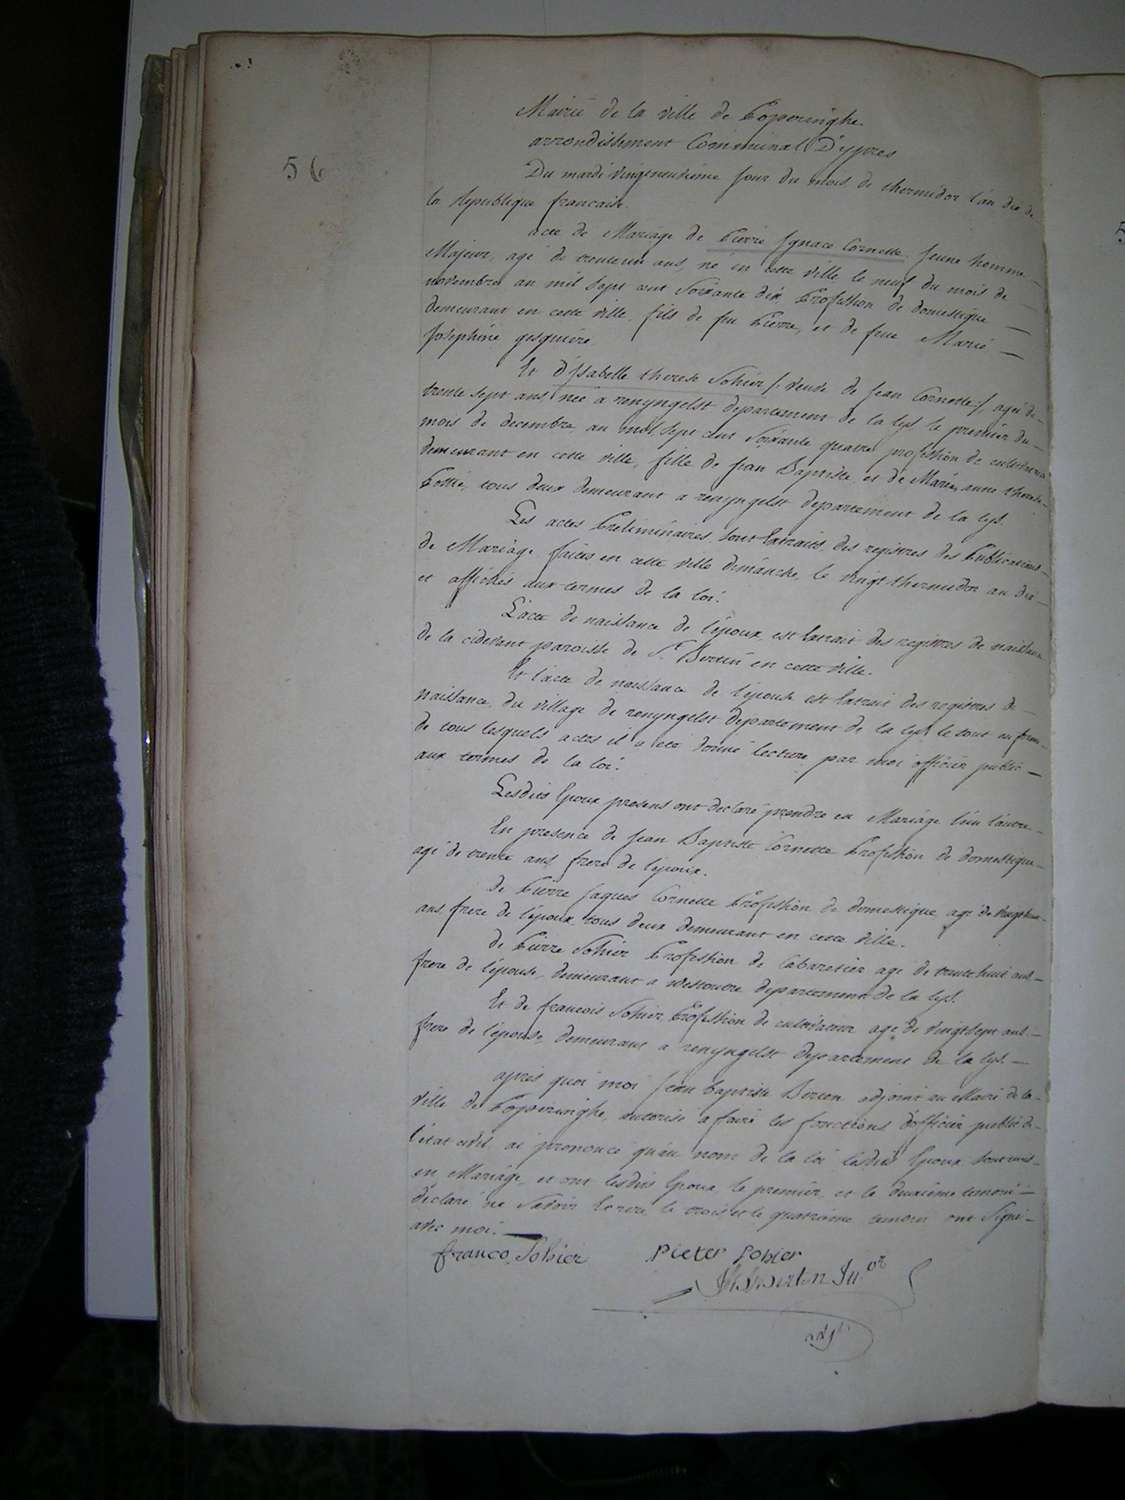 56
Mairie de la ville de Poperinghe
arrondissement Communal D'ypres
Du mardi vingtneuvieme jour du mois de thermidor l'an dix de
la Republique francaise.
acte de Mariage de Pierre Ignace Cornette jeune homme
Majeur, agé de trenteun ans, né en cette ville le neuf du mois de
novembre an mil sept cent Soixante dix Profession de domestique
demeurant en cette ville, fils de feu Pierre, et de feue Marie
Josephine gesquiere
Et d'Isabelle therese Sohier /: veuve de Jean Cornette :/ agée de
trente sept ans née a renyngelst departement de la lys le premier du
mois de decembre an mil sept cent Soixante quatre profession de
demeurant en cette ville, fille de jean Baptiste et de Marie anne therese
tous deux demeurant a renyngelst departement de la lys.
Les actes Preliminaires sont Extraits des registres des Publications
de Mariage faites en cette ville dimanche, le vingt thermidor an dix
et affichés aux termes de la loi.
L'acte de naissance de l'époux est Extrait des registres de naissance
de la cidevant paroisse de St Bertin en cette ville.
Et l'acte de naissance de l'épouse est Extrait des registres de
naissance du village de renyngelst departement de la lys le tout en forme
de tous lesquels actes il a été donné lecture par moi officier public
aux termes de la loi.
Lesdits Epoux presens ont declaré prendre en Mariage l'un l'autre
En presence de Jean Baptiste Cornette Profession de domestique
agé de trente ans frere de l'époux.
de Pierre Jaques Cornette Profession de domestique agé de
ans frere de l'époux tous deux demeurant en cette ville.
de Pierre Sohier Profession de Cabaretier agé de trentehuit ans
frere de l'épouse, demeurant a westoutre departement de la lys.
Et de francois Sohier Profession de cultivateur agé de vingtsept ans
frere de l'épouse, demeurant a renyngelst departement de la lys.
après quoi moi Jean baptiste Berten adjoint au Maire de la
ville de Poperinghe, autorisé a faire les fonctions d'officier public de
l'état civil, ai prononcé qu'au nom de la loi lesdits Epoux sont unis
en Mariage, et ont lesdits Epoux le premier et le deuxième temoin
declaré ne Savoir Ecrire le trois et le quatrieme temoin ont Signé
avec moi.
franco Sohier Pieter Sohier
adjt